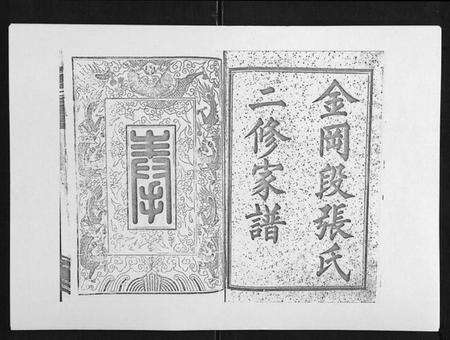 金岡段張氏
二修家譜